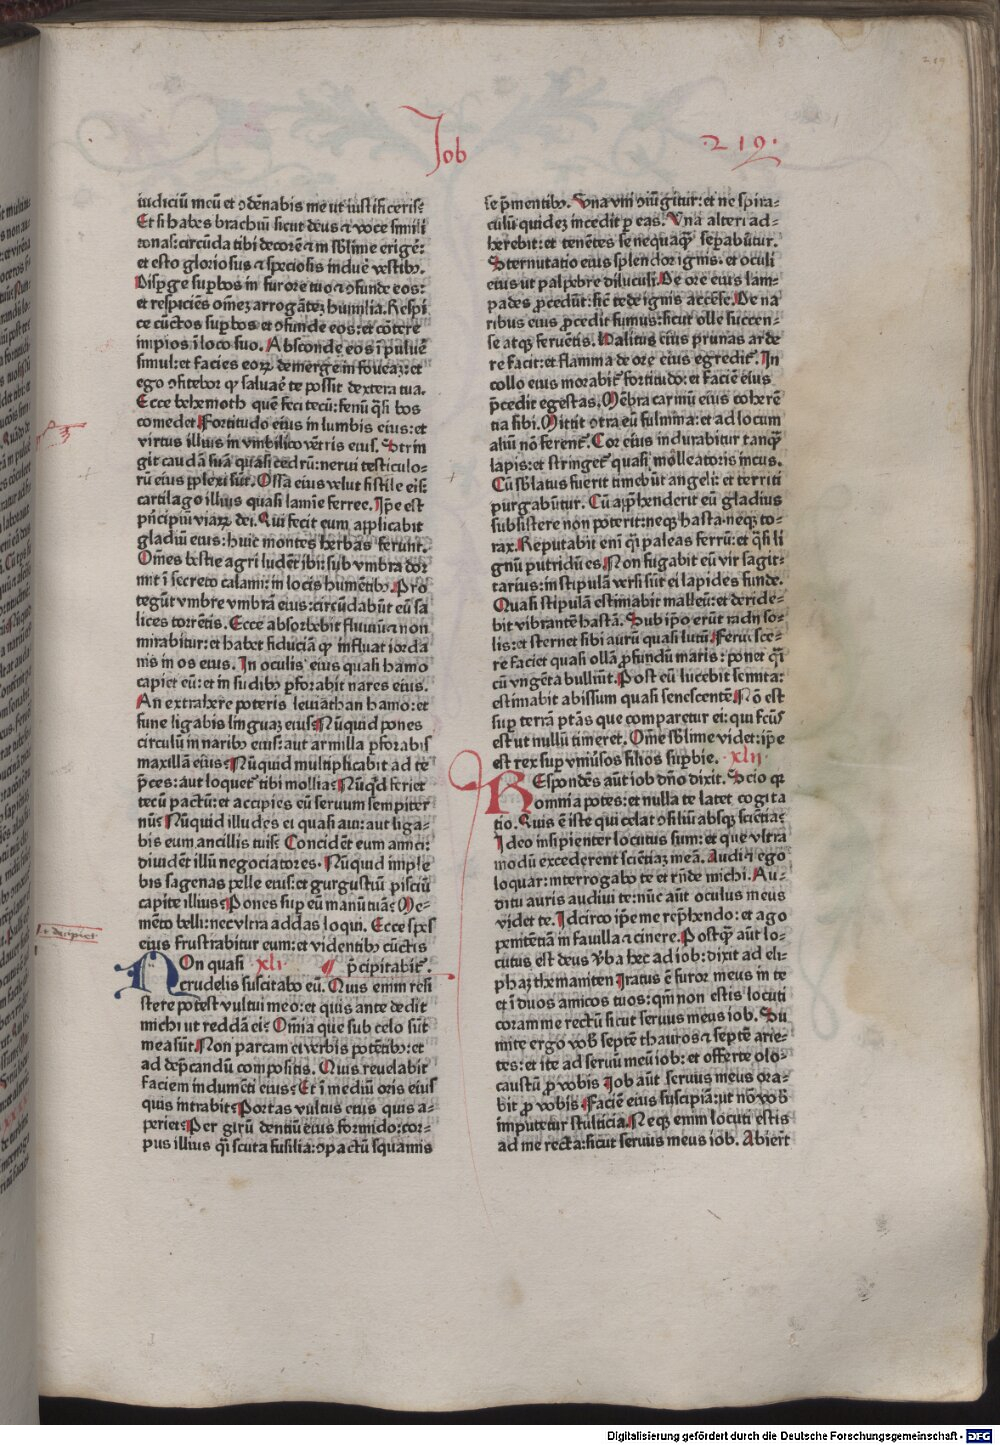 Job
·219·
iudiciū meū et ↄdēnabis me ut iustificeris?
Et si habes brachiū sicut deus ⁊ voce simili
tonas: circūda tibi decorē ⁊ in sb̄lime erigē:
et esto gloriosus ⁊ speciosis induē vestibꝫ.
Disp̄ge sup̄bos in furore tuo ⁊ ↄfunde eos:
et respiciēs om̄eꝫ arrogātē humilia. Respi
ce cūctos sup̄bos et ↄfunde eos: et cōtere
impios ī loco suo. Absconde eos ī puluē
simul: et facies eoꝝ demerge in foueaꝫ: et
ego ↄfitebor ꝙ saluaē te possit dextera tua.
Ecce behemoth quē feci tecū: fenū q̄si bos
comedet Fortitudo eius in lumbis eius: et
virtus illius in vmbilico vētris eius. Strin
git caudā suā quasi cedrū: nerui testiculo-
rū eius ꝑplexi sūt. Ossa eius velut fistile eis:
cartilago illius quasi lamie ferree. Ip̄e est
pn̄cipiū viaꝝ dei. Qui fecit eum applicabit
gladiū eius: huic montes herbas ferunt.
Om̄es bestie agri ludēt ibi: sub vmbra dor
mit ī secreto calami: in locis humētibꝫ. Pro
tegūt vmbre vmbrā eius: circūdabūt eū sa
lices torrētis. Ecce absorbebit fluuiū ⁊ non
mirabitur: et habet fiduciā ꝙ influat iorda
nis in os eius. In oculis eius quasi hamo
capiet eū: et in sudibꝫ ꝑforabit nares eius.
An extrahere poteris leuiathan hamo: et
fune ligabis linguaꝫ eius? Nūquid pones
circulū in naribꝫ eius: aut armilla ꝑforabis
maxillā eius? Nūquid multiplicabit ad te
p̄ces: aut loquet̄ tibi mollia? Nūqd̄ feriet
tecū pactū: et accipies eū seruum sempiter
nū? Nūquid illudes ei quasi aui: aut liga-
bis eum ancillis tuis? Concidēt eum amici:
diuidēt illū negociatores. Nūquid imple
bis sagenas pelle eius: et gurgustiū pisciū
capite illius? Pones sup eū manū tuā? Me-
mēto belli: nec vltra addas loqui. Ecce spes
eius frustrabitur eum: et videntibꝫ cūctis
NOn quasi xli ¶ p̄cipitabit̄.
crudelis suscitabo eū. Quis enim resi
stere potest vultui meo: et quis ante dedit
michi ut reddā ei? Om̄ia que sub celo sūt
mea sūt. Non parcam ei verbis potētibꝫ: et
ad dep̄candū compositis. Quis reuelabit
faciem indumēti eius? Et ī mediū oris eius
quis intrabit? Portas vultus eius quis a-
periet? Per girū dentiū eius formido: cor-
pus illius q̄si scuta fusilia: ↄpactū squamis
se p̄mentibꝫ. Vna vni ↄiūgitur: et ne spira-
culū quideꝫ incedit ꝑ eas. Vna alteri ad-
herebit: et tenētes se nequaq̄ꝫ sepabūtur.
Sternutatio eius splendor ignis. et oculi
eius ut palpebre diluculi. De ore eius lam-
pades ꝓcedūt: sic̄ tede ignis accēse. De na
ribus eius ꝓcedit fumus: sicut olle succen-
se atqꝫ feruētis. Halitus eius prunas arde
re facit: et flamma de ore eius egredit̄. In
collo eius morabit̄ fortitudo: et faciē eius
p̄cedit egestas. Mēbra carniū eius coherē
tia sibi. Mittit ↄtra eū fulmina: et ad locum
aliū nō ferent̄. Cor eius indurabitur tanqꝫ
lapis: et stringet̄ quasi malleatoris incus.
Cū sb̄latus fuerit timebūt angeli: et territi
purgabūtur. Cū app̄henderit eū gladius
subsistere non poterit: neqꝫ hasta. neqꝫ to-
rax. Reputabit enī q̄si paleas ferrū: et q̄si li
gnū putridū es. Non fugabit eū vir sagit-
tarius: in stipulā versi sūt ei lapides funde.
Quasi stipulā estimabit malleū: et deride-
bit vibrantē hastā. Sub ip̄o erūt radii so-
lis: et sternet sibi aurū quasi lutū. Feruesce-
re faciet quasi ollā ꝓfundū maris: ponet q̄si
cū vngēta bulliūt. Post eū lucebit semita:
estimabit abissum quasi senescentē. Nō est
sup̄ terrā ptās que comparetur ei: qui fc̄us
est ut nullū timeret. Om̄e sb̄lime videt: ip̄e
est rex sup vniūsos filios sup̄bie. xlii
REspondēs aūt iob dn̄o dixit. Scio qꝛ
omnia potes: et nulla te latet cogita
tio. Quis ē iste qui celat ↄsiliū absqꝫ sciētia?
Ideo insipienter locutus sum: et que vltra
modū excederent sciētiaꝫ meā. Audi ⁊ ego
loquar: interrogabo te et rn̄de michi. Au-
ditu auris audiui te: nūc aūt oculus meus
videt te. Idcirco ip̄e me rep̄hendo: et ago
penitētiā in fauilla ⁊ cinere. Postq̄ꝫ aūt lo-
cutus est deus v̄ba hec ad iob: dixit ad eli-
phaꝫ themaniten Iratus ē furor meus in te
et ī duos amicos tuos: qm̄ non estis locuti
coram me rectū sicut seruus meus iob. Su
mite ergo vob̄ septē thauros ⁊ septē arie-
tes: et ite ad seruū meū iob: et offerte olo-
caustū ꝓ vobis Iob aūt seruus meus ora-
bit ꝓ vobis. Faciē eius suscipiā: ut nō vob̄
imputetur stulticia. Neqꝫ enim locuti estis
ad me recta: sicut seruus meus iob. Abierūt
Digitalisierung gefördert durch die Deutsche Forschungsgemeinschaft - DFG